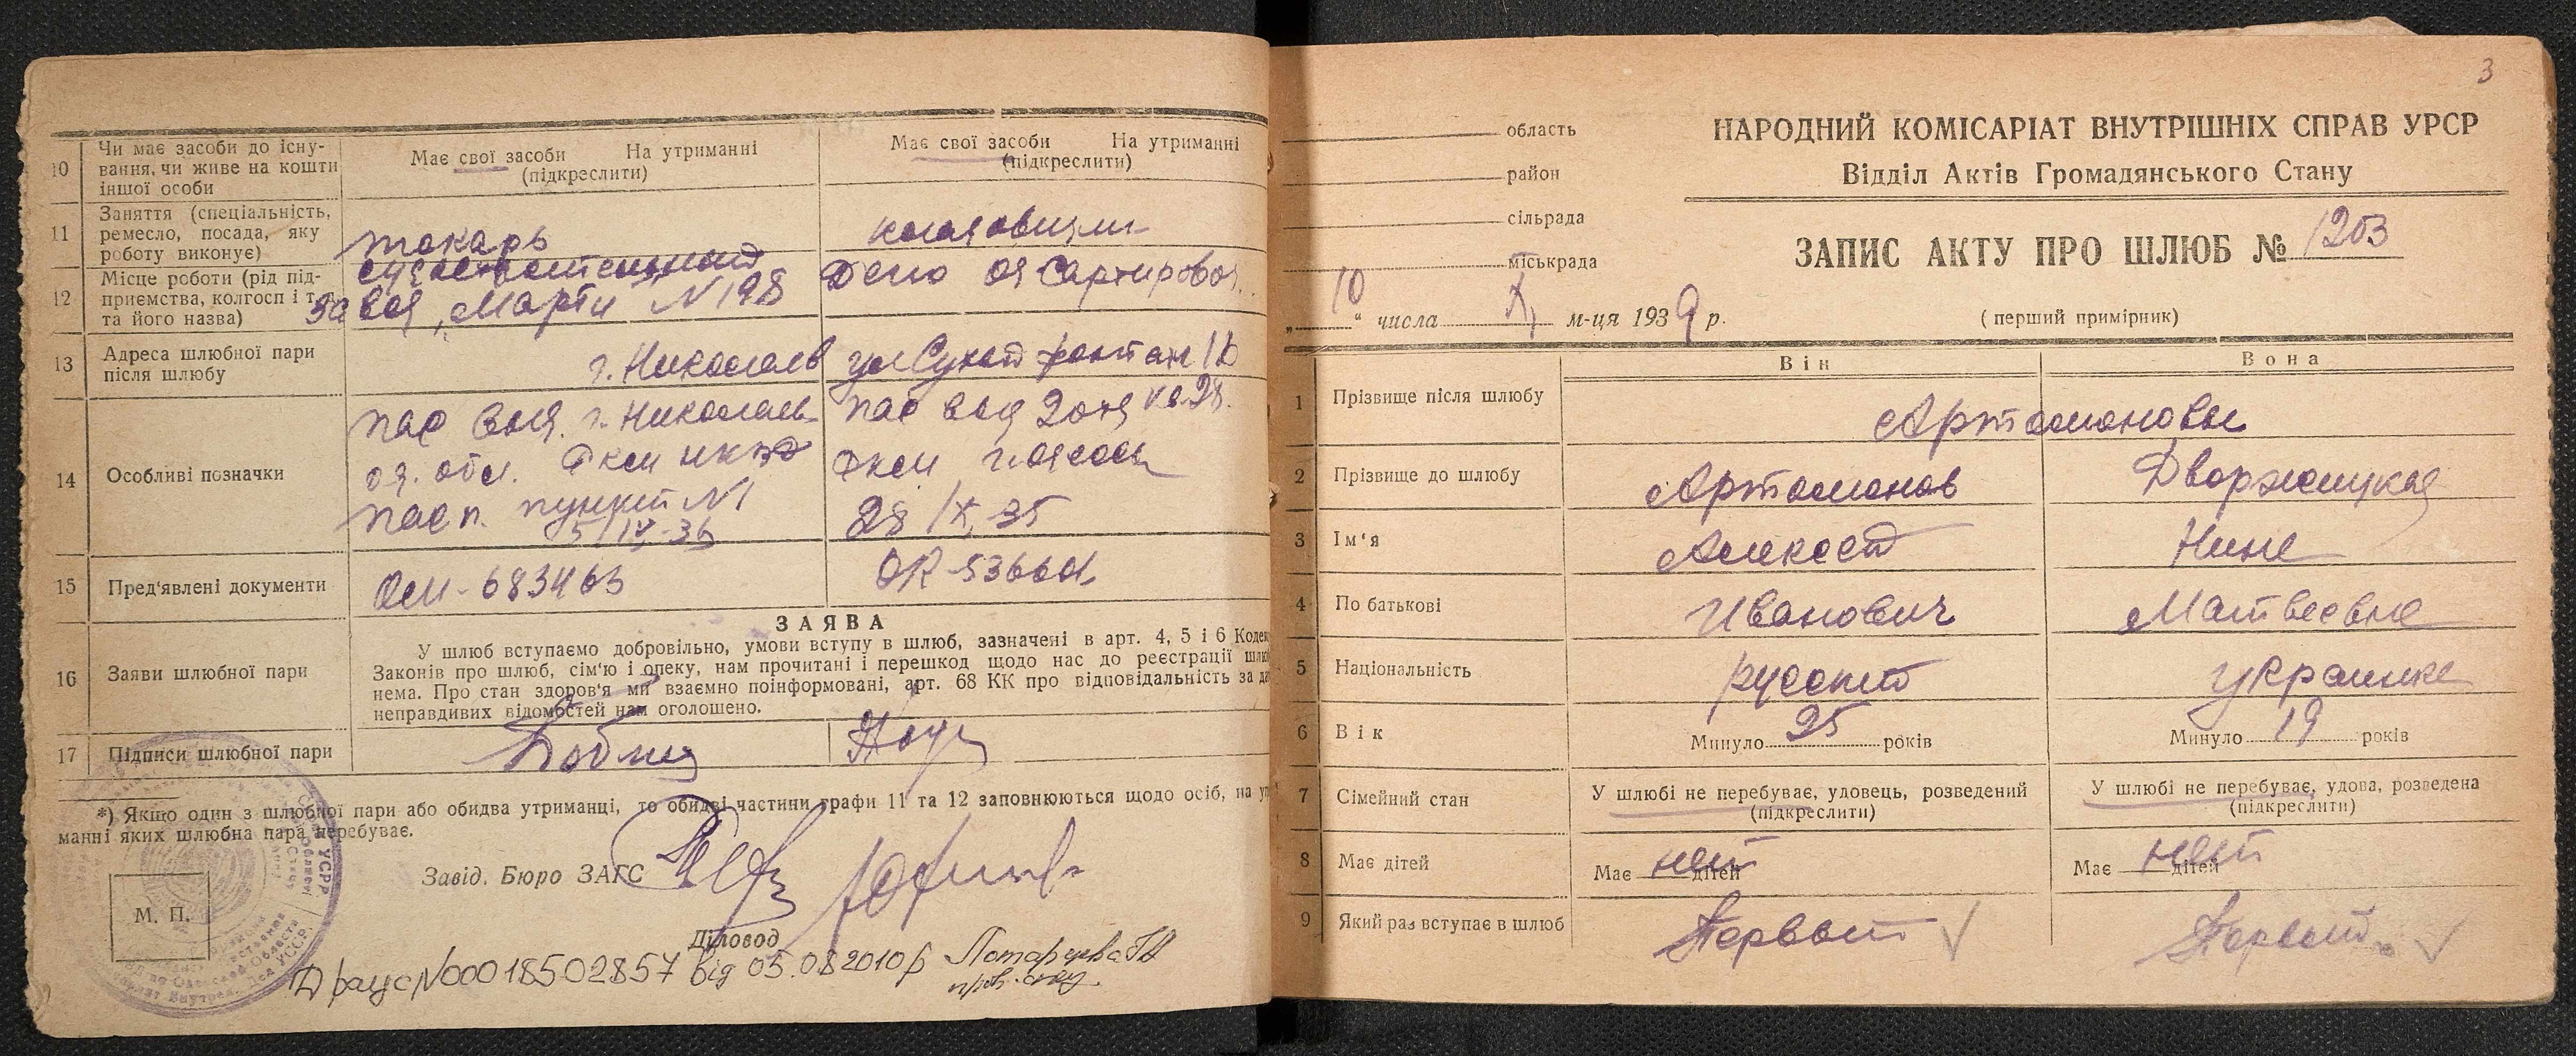 10 Чи має засоби до існу-
вання, чи живе на кошти
іншої особи
Має свої засоби На утриманні
(підкреслити)
Має свої засоби На утриманні
(підкреслити)
11 Заняття (спеціальність,
ремесло, посада, яку
роботу виконує)
токарь
12 Місце роботи (рід під-
приємства, колгосп і т. д.
та його назва)
судостроительный
завод „Марти" N 198
13 Адреса шлюбної пари
після шлюбу
г. Николаев ул Сухой фонтан
14 Особливі позначки
пас выд. г. Николаев
од. обл. РКМ НКВД
пасп. пункт N 1
5/IV-36
пас выд 20
РКМ г. Одессы
28/IX-35
15 Пред'явлені документи
683463
16 Заяви шлюбної пари
ЗАЯВА
У шлюб вступаємо добровільно, умови вступу в шлюб, зазначені в арт. 4, 5 і 6 Кодек
Законів про шлюб, сім'ю і опеку, нам прочитані і перешкод щодо нас до реєстрації шлю
нема. Про стан здоров'я ми взаємно поінформовані, арт. 68 КК про відповідальність за да
неправдивих відомостей нам оголошено.
17 Підписи шлюбної пари
*) Якщо один з шлюбної пари або обидва утриманці, то обидві частини графи 11 та 12 заповнюються щодо осіб, на ут
манні яких шлюбна пара перебуває.
Завід. Бюро ЗАГС
М. П.
Діловод
ДРАЦС N 00018502857 від 05.08.2010р
3
область
район
сільрада
міськрада
НАРОДНИЙ КОМІСАРІАТ ВНУТРІШНІХ СПРАВ УРСР
Відділ Актів Громадянського Стану
ЗАПИС АКТУ ПРО ШЛЮБ № 1203
„10" числа X м-ця 1939 р.
(перший примірник)
Він Вона
1 Прізвище після шлюбу Артамоновы
2 Прізвище до шлюбу Артамонов Дворжицкая
3 Ім'я Алексей Нина
4 По батькові Иванович Матвеевна
5 Національність русский украинка
6 Вік Минуло 25 років Минуло 19 років
7 Сімейний стан
У шлюбі не перебуває, удовець, розведений
(підкреслити)
У шлюбі не перебуває, удова, розведена
(підкреслити)
8 Має дітей Має нет дітей Має нет дітей
9 Який раз вступає в шлюб Первый Первый